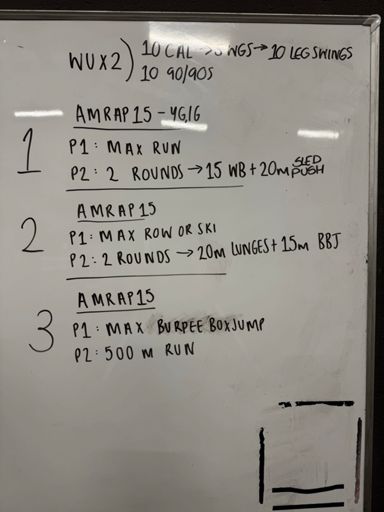 WUX2) 10 CAL → WGS → 10 LEG SWINGS
10 90/90S
1
AMRAP 15 - YGIG
P1: MAX RUN
P2: 2 ROUNDS → 15 WB + 20m SLED PUSH
2
AMRAP 15
P1: MAX ROW OR SKI
P2: 2 ROUNDS → 20m LUNGES + 15m BBJ
3
AMRAP 15
P1: MAX BURPEE BOXJUMP
P2: 500 m RUN